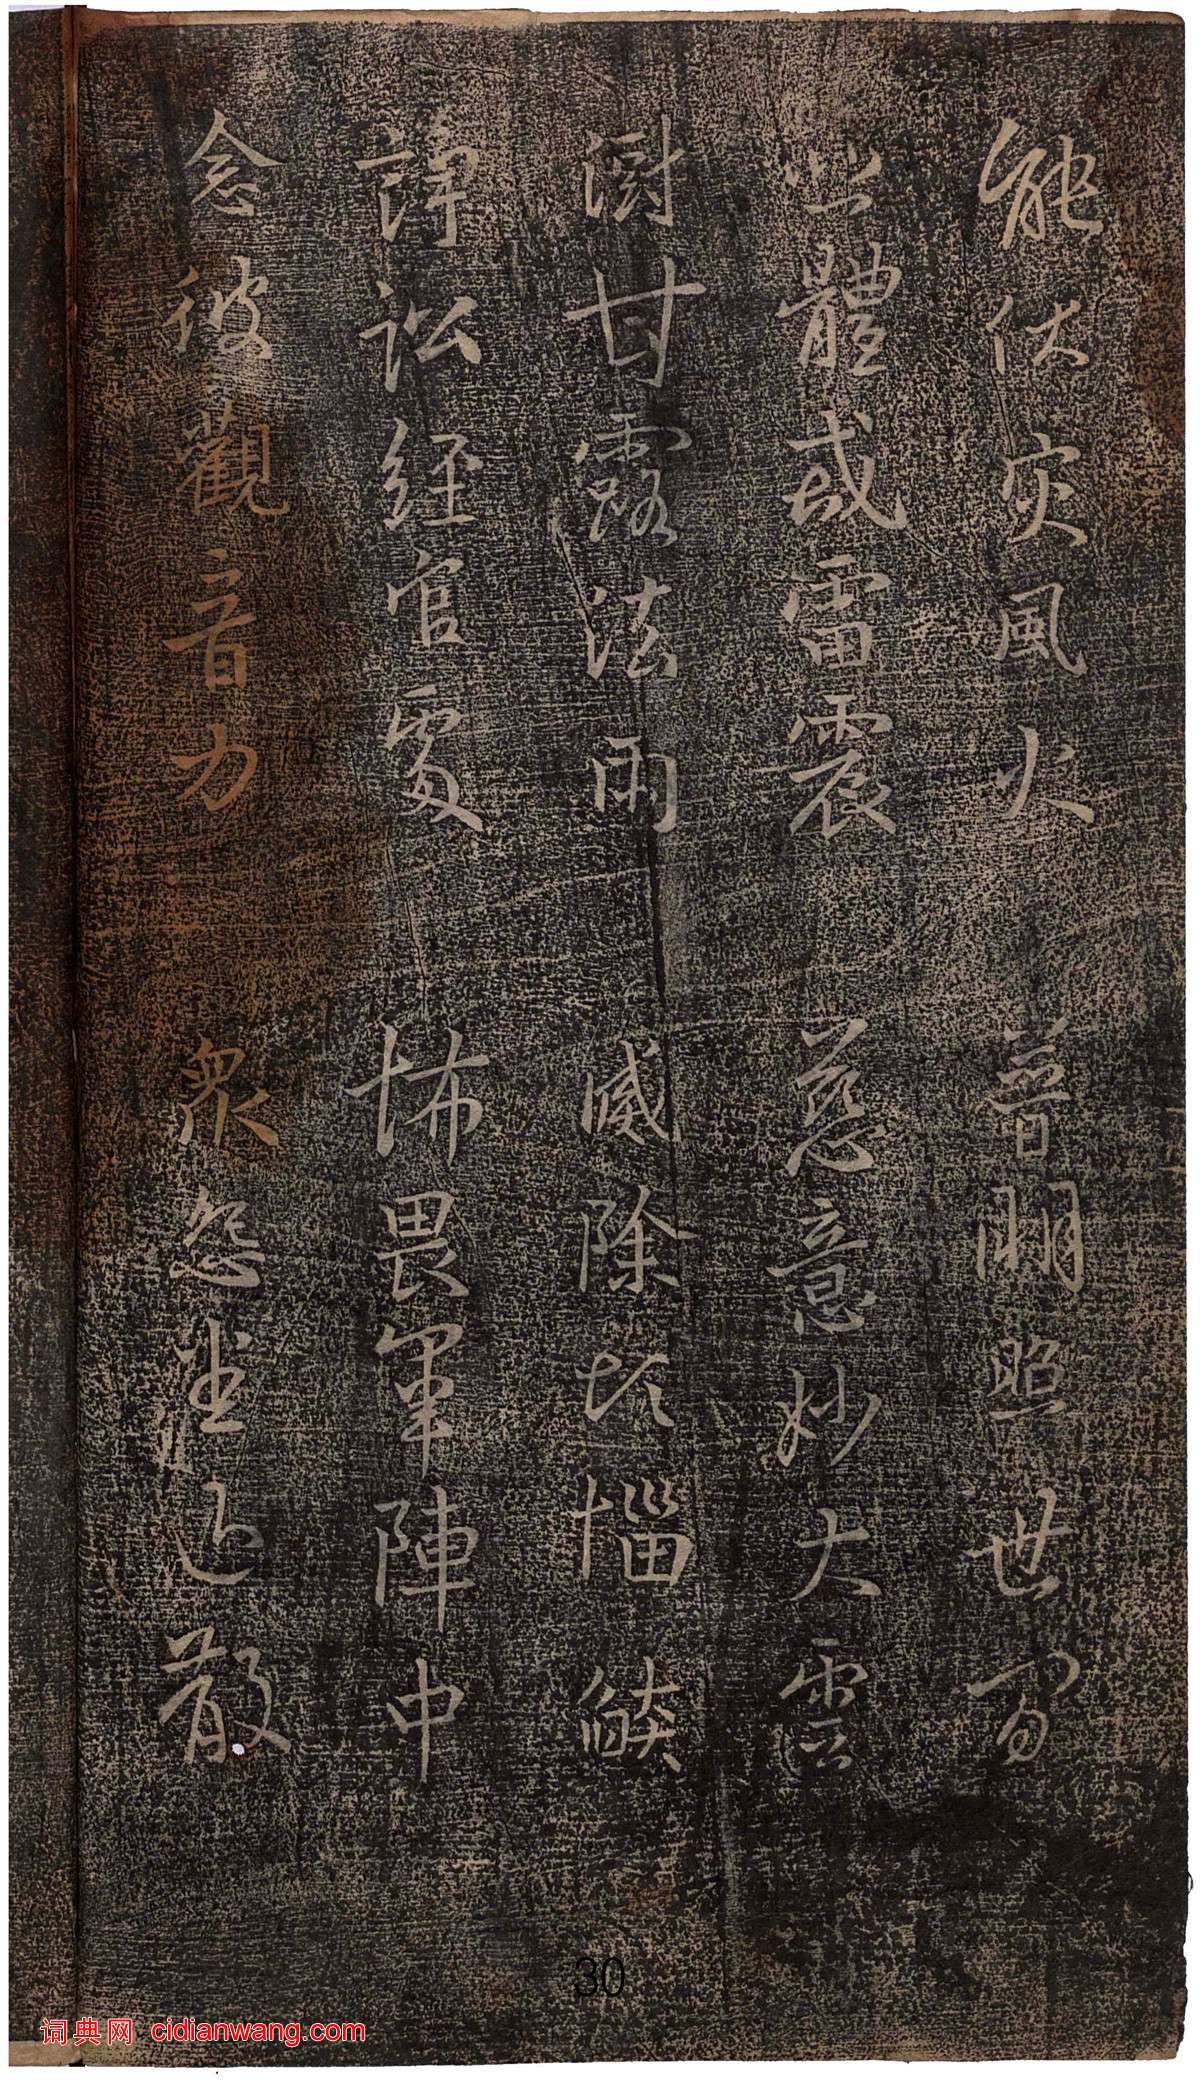 能伏災風火　普明照世間
悲體戒雷震　慈意妙大雲
澍甘露法雨　滅除煩惱燄
諍訟經官處　怖畏軍陣中
念彼觀音力　眾怨悉退散
30
词典网 cidianwang.com